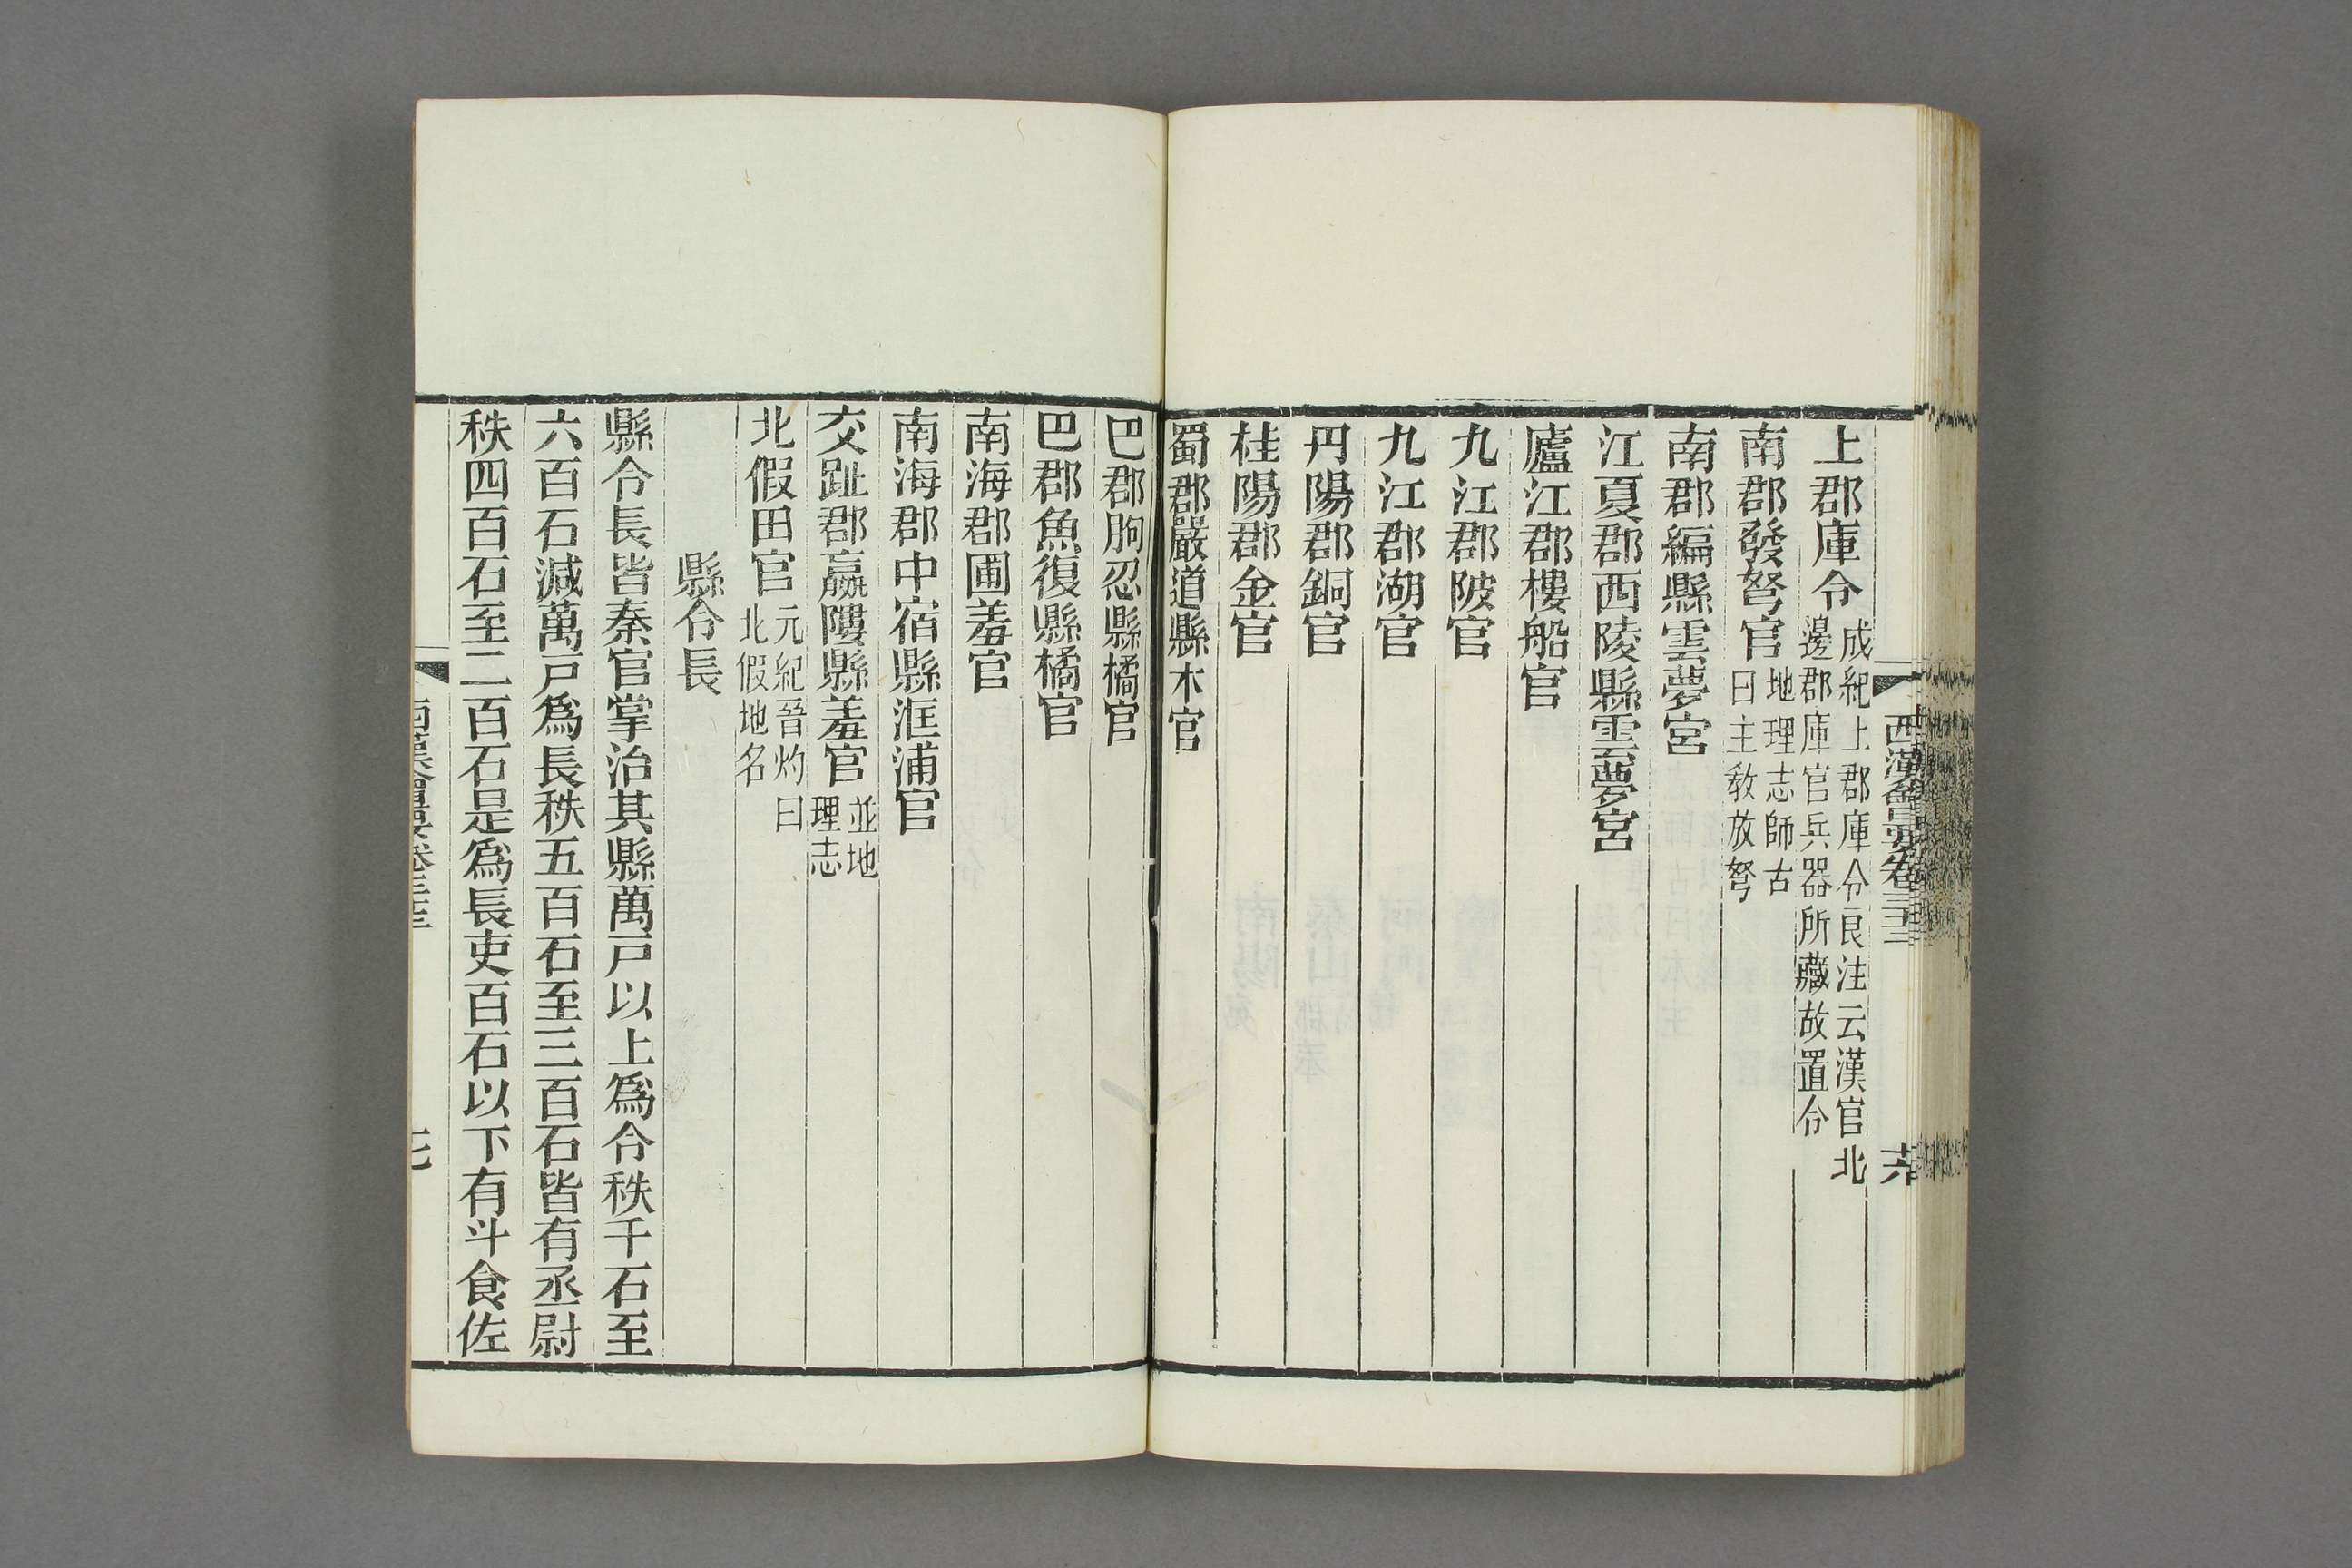 上郡庫令成紀上郡庫令良注云漢官北邊郡庫官兵器所藏故置令
南郡發弩官地理志師古曰主敎放弩
南郡編縣雲夢宮
江夏郡西陵縣雲夢宮
廬江郡樓船官
九江郡陂官
九江郡湖官
丹陽郡銅官
桂陽郡金官
蜀郡嚴道縣木官
巴郡朐忍縣橘官
巴郡魚復縣橘官
南海郡圃羞官
南海郡中宿縣洭浦官
交趾郡羸𨻻縣羞官並地理志
北假田官元紀晉灼曰北假地名
縣令長
縣令長皆秦官掌治其縣萬戸以上爲令秩千石至
六百石減萬戸爲長秩五百石至三百石皆有丞尉
秩四百石至二百石是爲長吏百石以下有斗食佐
西漢會要卷三十三
七